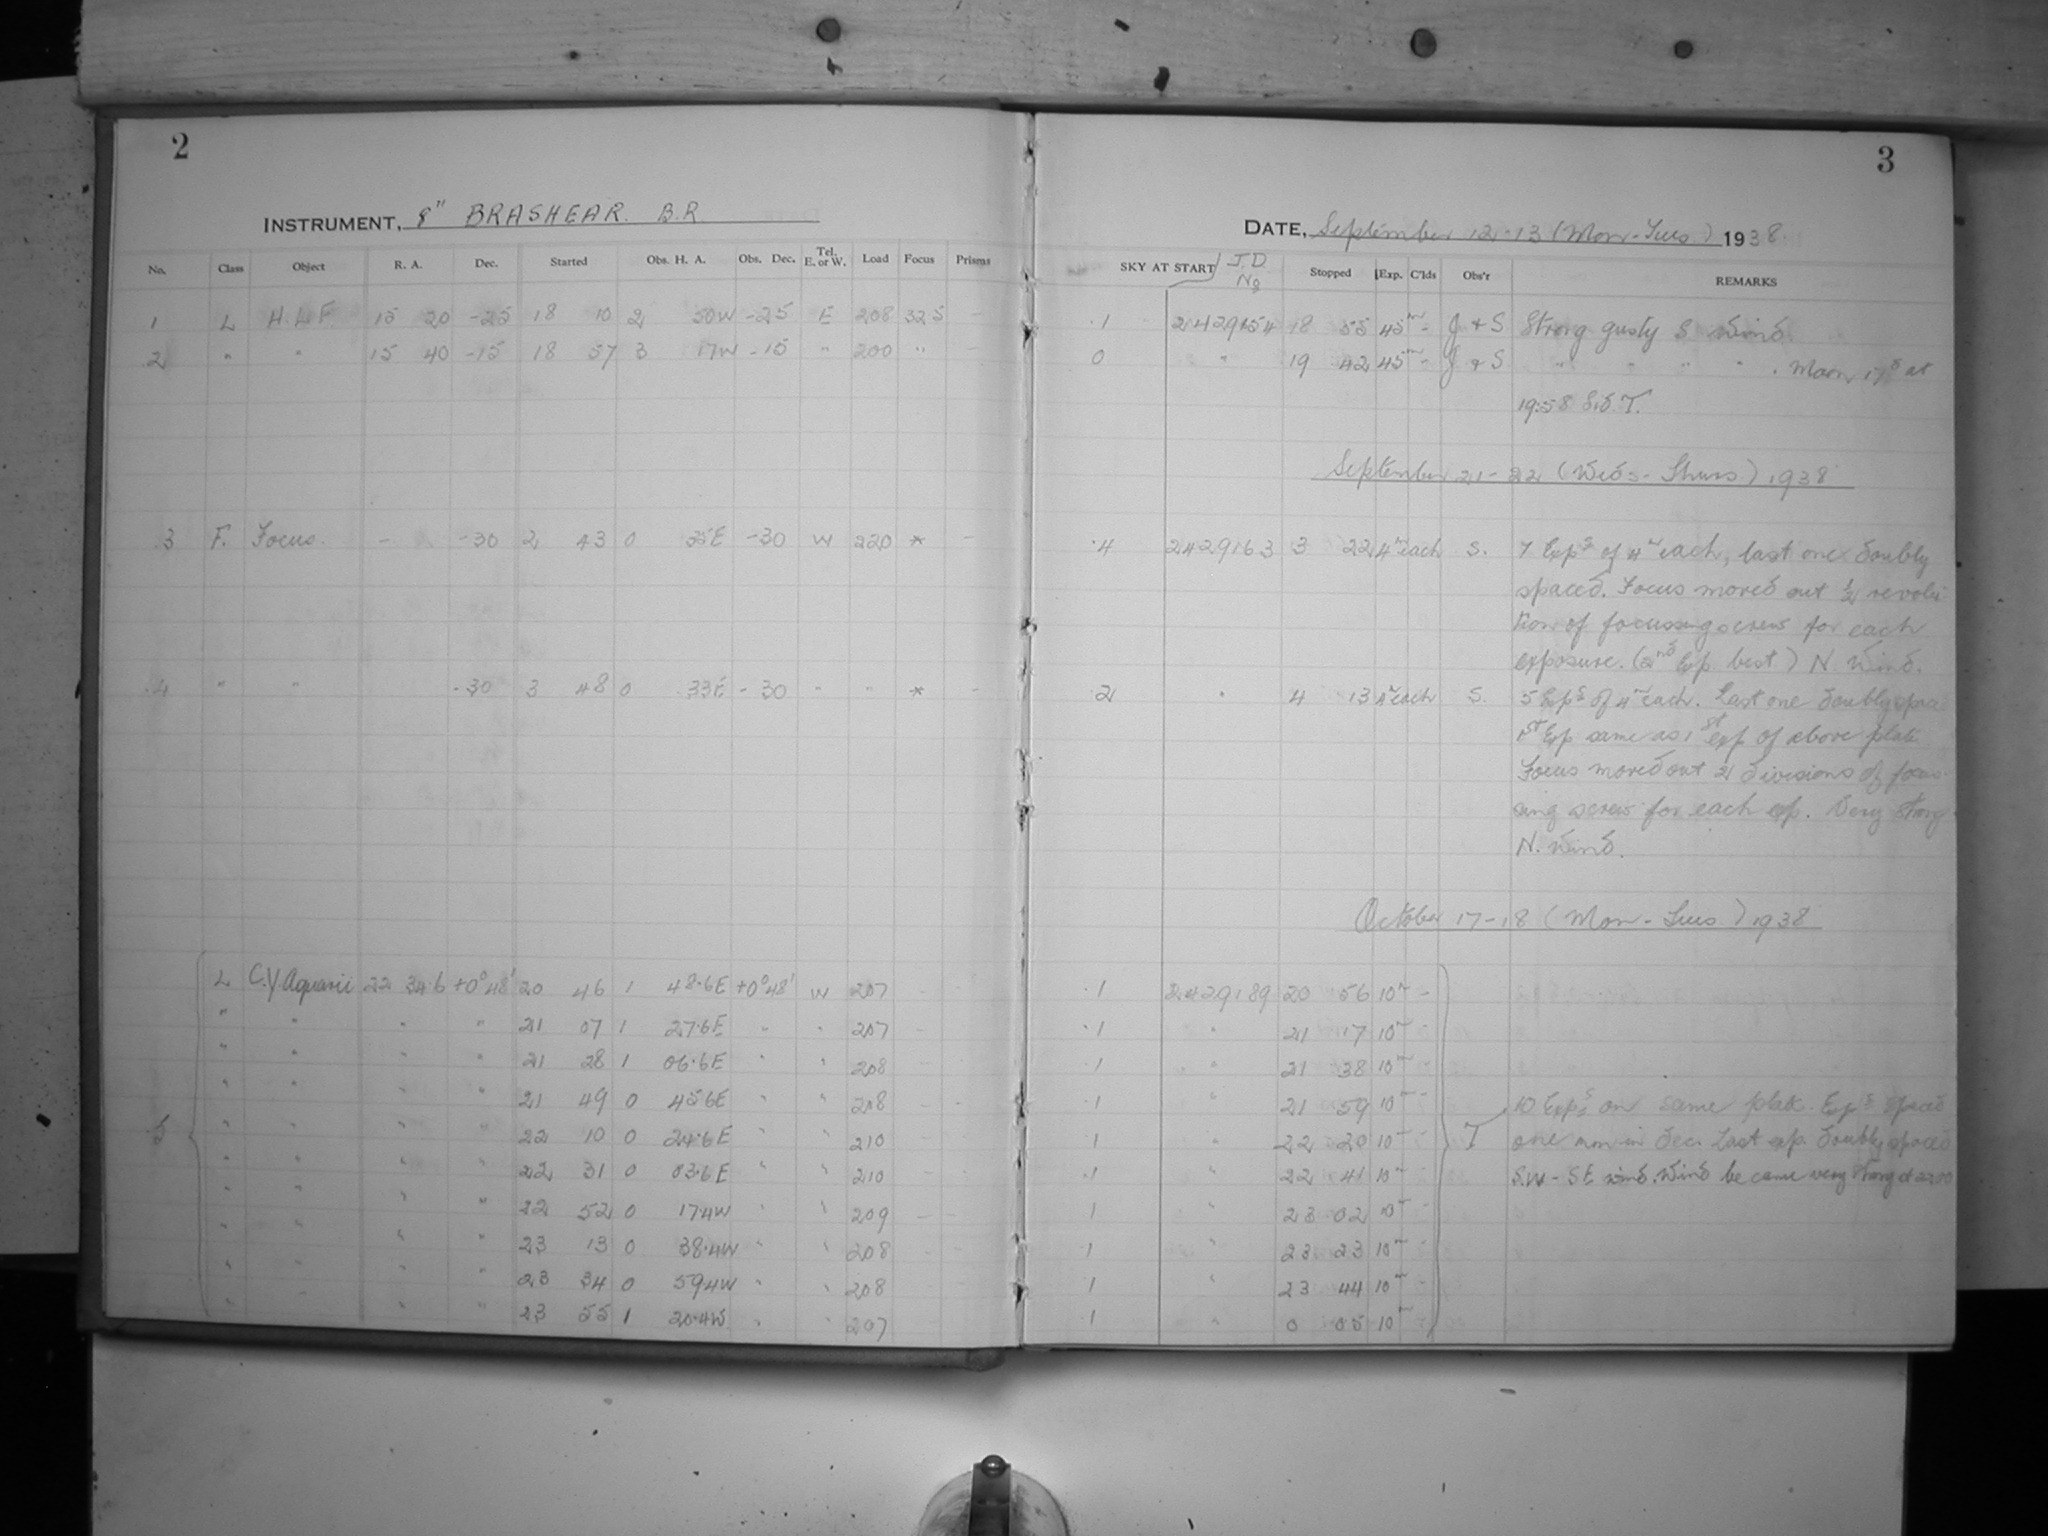 2
INSTRUMENT, 8" BRASHEAR. B.R.
No. Class Object R. A. Dec. Started Obs. H. A. Obs. Dec. Tel. E. or W. Load Focus Prisms
1 L H.L.F. 15 20 -25 18 10 2 50W -25 E 208 325 -
2 " " 15 40 -15 18 57 3 17W -15 " 200 " -
3 F. Focus. - -30 2 43 0 35E -30 W 220 * -
4 " " -30 3 48 0 33E -30 " " * -
L C.Y. Aquarii 22 34.6 +0° 48' 20 46 1 48.6E +0° 48' W 207 - -
" " " " 21 07 1 27.6E " " 207 -
" " " " 21 28 1 06.6E " " 208 - -
" " " " 21 49 0 45.6E " " 208 - -
5 " " " " 22 10 0 24.6E " " 210
" " " " 22 31 0 03.6E " " 210
" " " " 22 52 0 17.4W " " 209 - -
" " " " 23 13 0 38.4W " " 208 - -
" " " " 23 34 0 59.4W " " 208
" " " " 23 55 1 20.4W " " 207
3
DATE, September 12-13 (Mon-Tues.) 1938
SKY AT START J.D. Stopped Exp. C'lds Obs'r REMARKS
.1 2429154 18 55 45m - J & S Strong gusty S wind.
0 " 19 42 45m - J & S " " " " . Moon at
19:58 Sid. T.
September 21-22 (Weds-Thurs) 1938
.4 2429163 3 22 4m each S. 7 Exps of 4m each, last one doubly
spaced. Focus moved out ½ revolu-
tion of focussing screw for each
exposure. (2nd Exp. best) N. Wind.
2 " 4 13 4m each S. 5 Exps of 4m each. Last one doubly
1st Exp same as 1st exp of above plate
Focus moved out 2 divisions of focus-
sing screw for each exp. Very strong
N. Wind.
October 17-18 (Mon-Tues.) 1938
.1 2429189 20 56 10m -
.1 " 21 17 10m -
.1 " 21 38 10m -
.1 " 21 59 10m - 10 Exps on same plate. Exps spaced
.1 " 22 20 10m - T one mm in dec. Last exp. doubly spaced
.1 " 22 41 10m S.W - SE wind. Wind became very strong at 22:00
1 " 23 02 10m -
.1 " 23 23 10m -
1 " 23 44 10m
.1 " 0 05 10m